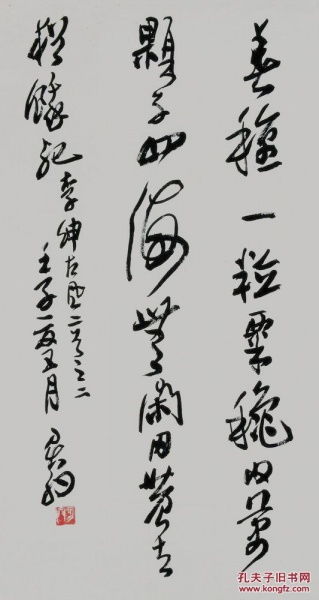 春種一粒粟穐收萬
顆子四海無閑田農夫
猶餓死李紳古風二首之二
壬子 月
孔夫子旧书网
www.kongfz.com